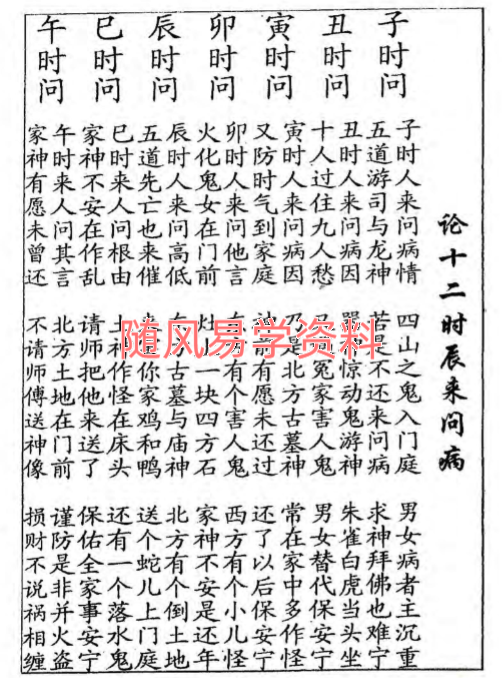 论十二时辰来问病
子时问
子时人来问病情 四山之鬼入门庭 男女病者主沉重
五道游司与龙神 苦是不还来问病 求神拜佛也难宁
丑时问
丑时人来问病因 神惊动鬼游神 朱雀白虎当头坐
十人过住九人愁 冤家害人鬼 男女替代保安宁
寅时问
寅时人来问病因 乃是北方古墓神 常在家中多作怪
又防时气到家庭 神前有愿未还过 还了以后保安宁
卯时问
卯时人来问他言 方有个害人鬼 西方有个小儿怪
火化鬼女在门前 灶上一块四方石 家神不安是还年
辰时问
辰时人来问高低 东方古墓与庙神 北方有个倒土地
五道先亡也来催 你家鸡和鸭 送个蛇儿上门庭
巳时问
巳时来人问根由 土神作怪在床头 还有一个落水鬼
家神不安在作乱 请师把他来送了 保佑全家事安宁
午时问
午时来人问其言 北方土地在门前 谨防是非并火盗
家神有愿未曾还 不请师傅送神像 损财不说祸相缠
随风易学资料